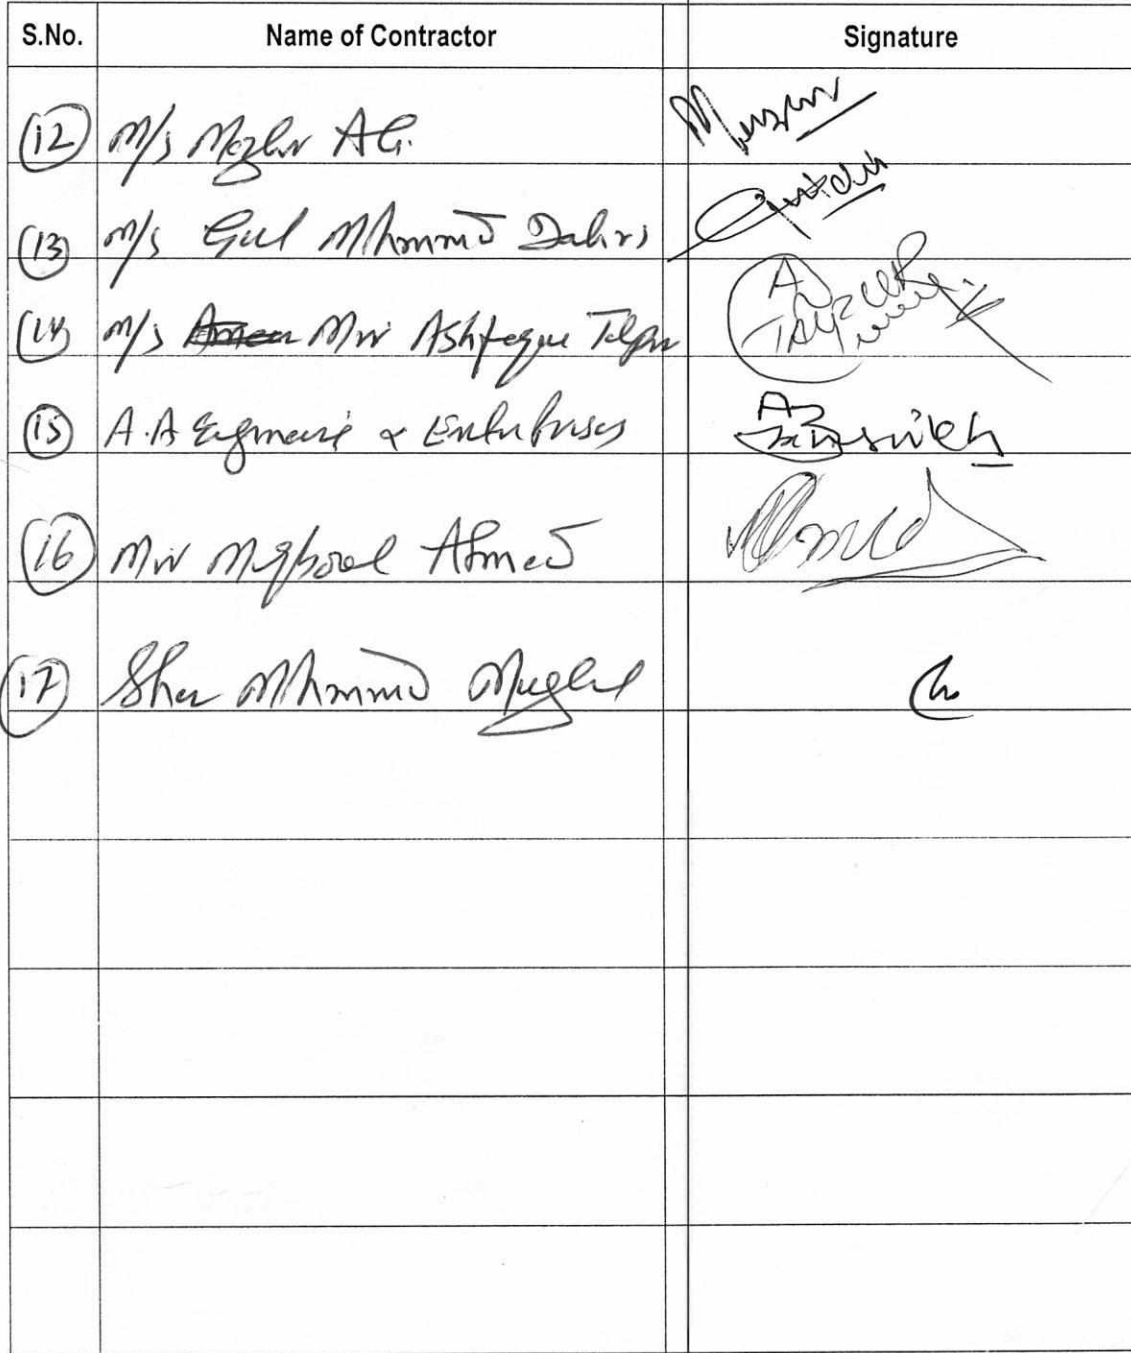 S.No. Name of Contractor Signature
12 M/s Mazhar Ali
13 M/s Gul Mhmmd Dahri
14 M/s Mir Ashfaque Talpur
15 A.A Engineering & Enterprises
16 Mir Maqbool Ahmed
17 Sher Mhmmd Mughal